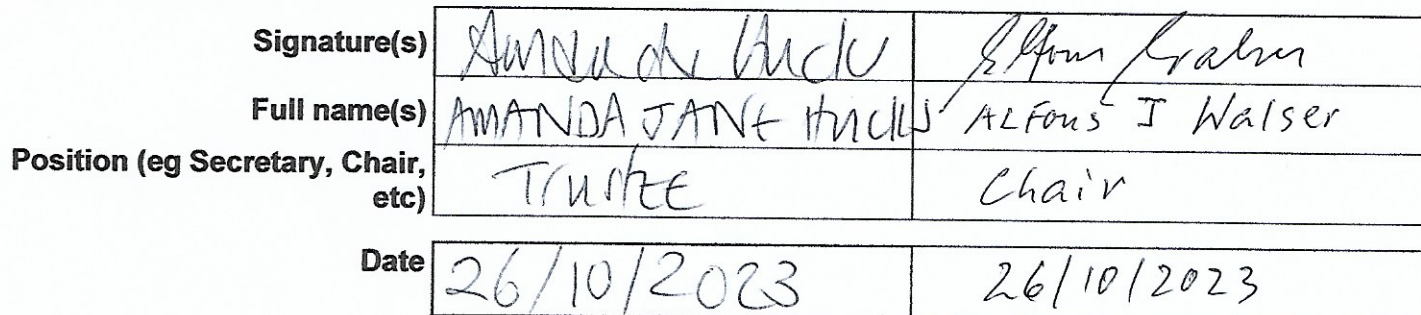 Signature(s) Amanda Alfons Walser
Full name(s) AMANDA JANE Hucks ALFons J Walser
Position (eg Secretary, Chair, etc) Trustee Chair
Date 26/10/2023 26/10/2023